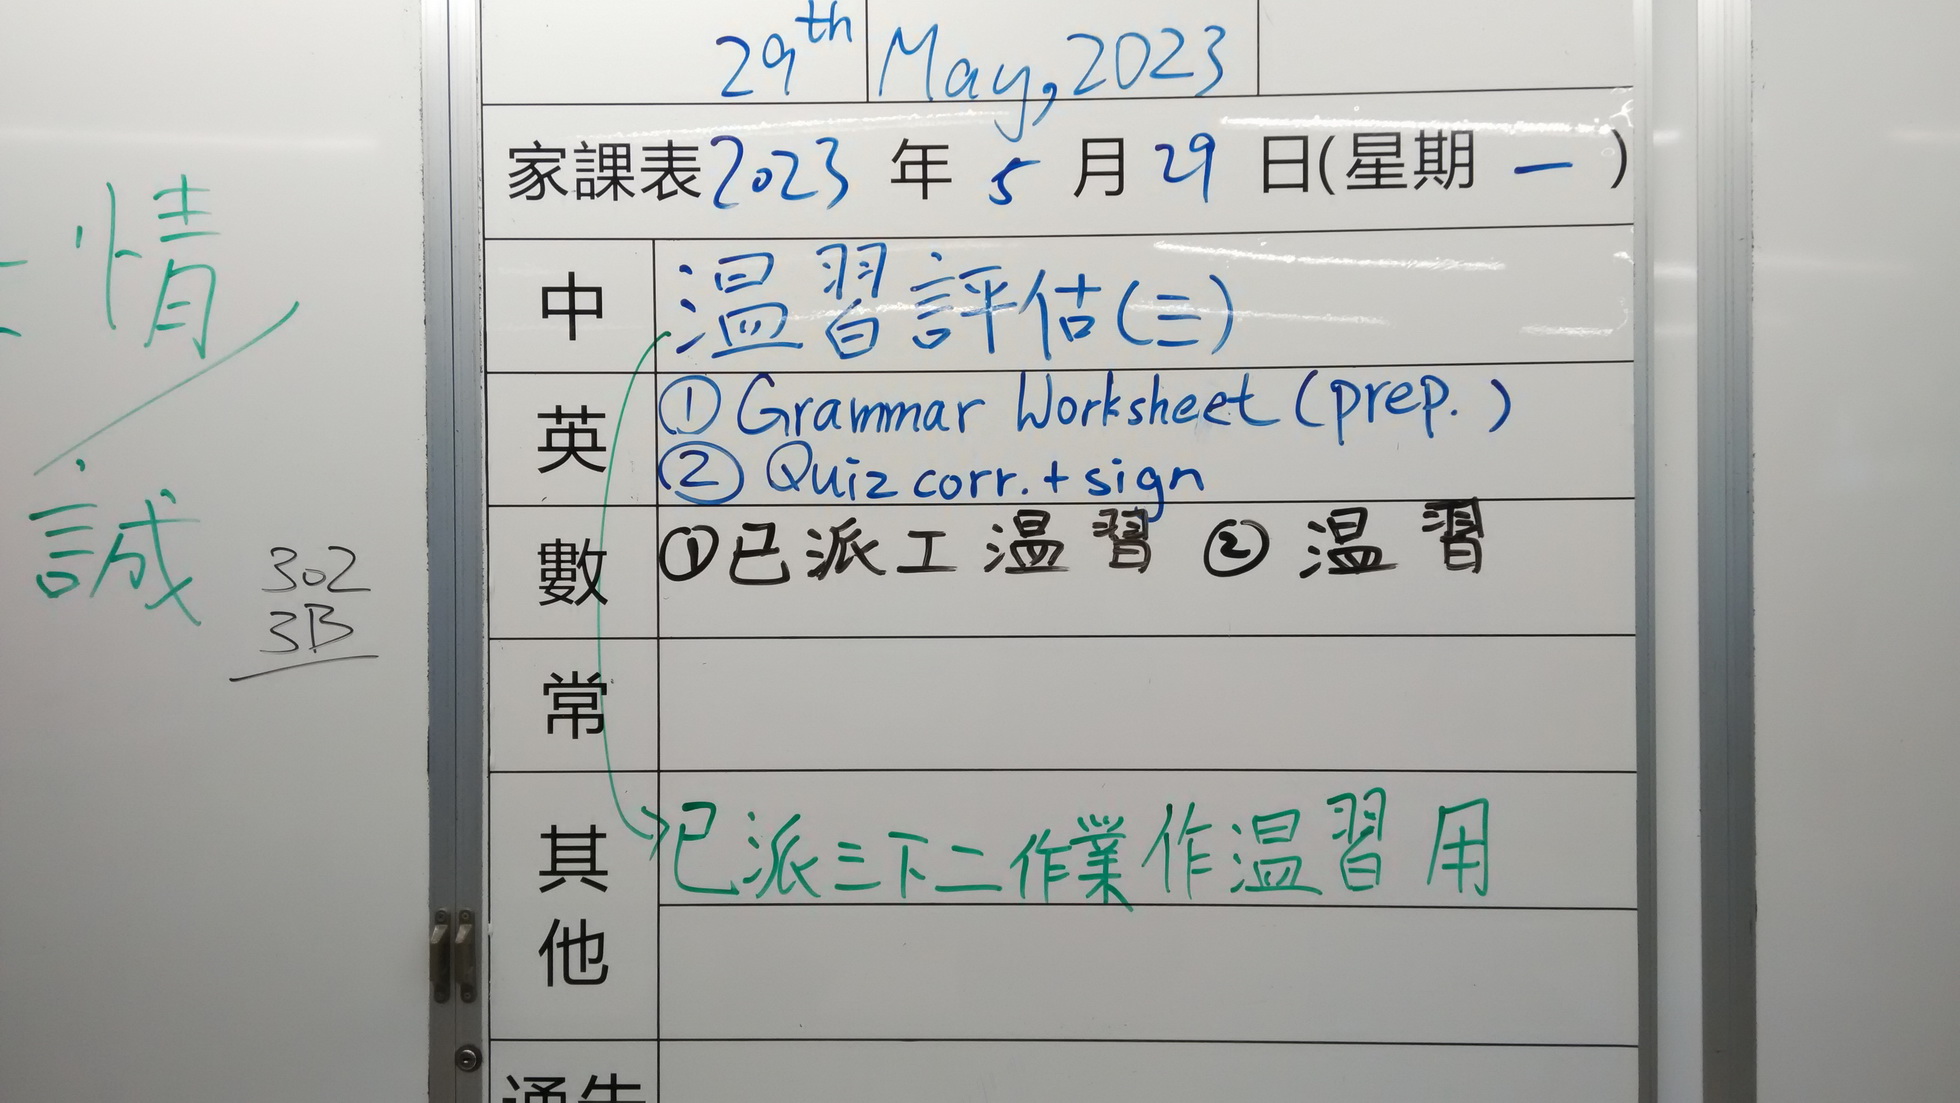 29th May, 2023
家課表 2023 年 5 月 29 日(星期 一 )
中 温習評估(三)
英 ① Grammar Worksheet (prep.)
② Quiz corr. + sign
數 ①已派工温習 ② 温習
常
其他 已派三下二作業作温習用
通告
情
誠
302
3B